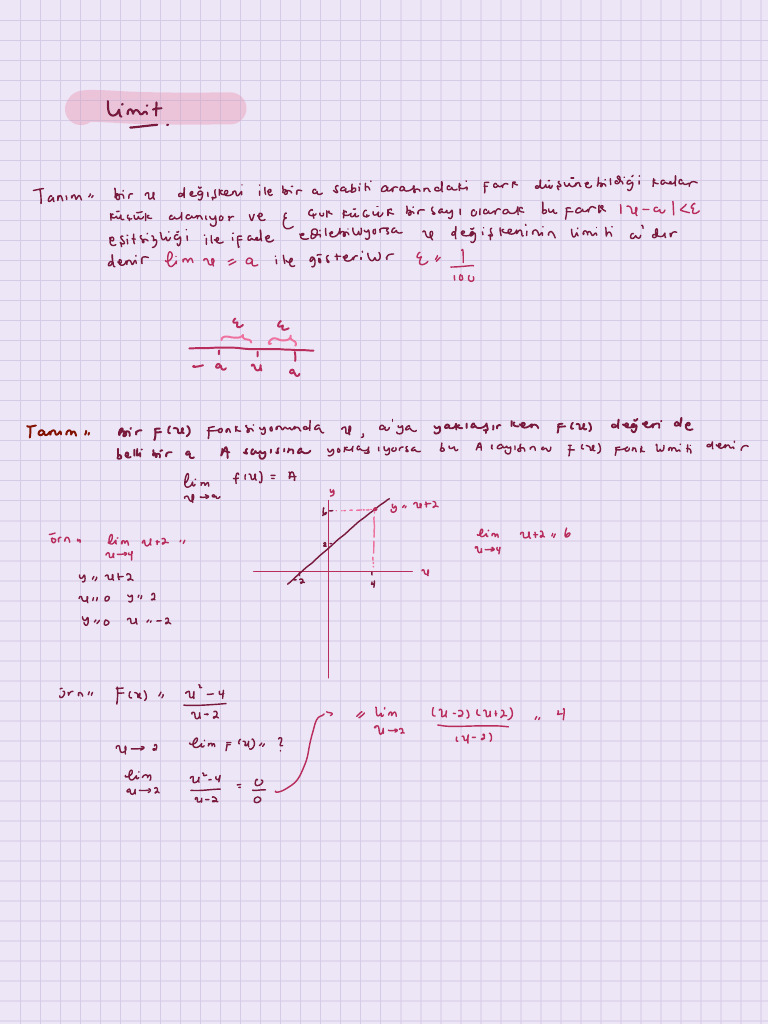 Limit
Tanım = bir x değişkeni ile bir a sabiti arasındaki fark düşünebildiği kadar
küçük alanıyor ve ε çok küçük bir sayı olarak bu fark |x-a|<ε
eşitsizliği ile ifade edilebiliyorsa x değişkeninin limiti a'dır
denir lim x = a ile gösterilir ε = 1/100
ε ε
- a x a
Tanım = Bir F(x) fonksiyonunda x, a'ya yaklaşırken F(x) değeri de
belli bir a A sayısına yaklaşıyorsa bu A sayısına F(x) fonk limiti denir
lim x→a f(x) = A
örn = lim x→4 x+2 =
y = x+2
x = 0 y = 2
y = 0 x = -2
y
6
y = x+2
2
-2 4 x
lim x→4 x+2 = 6
örn = F(x) = x²-4 / x-2
x→2 lim F(x) = ?
lim x→2 x²-4 / x-2 = 0/0
= lim x→2 (x-2)(x+2) / (x-2) = 4